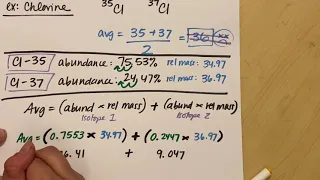 ex: Chlorine ³⁵Cl ³⁷Cl
avg = 35 + 37 / 2 = 36
Cl-35 abundance: 75.53% rel mass: 34.97
Cl-37 abundance: 24.47% rel mass: 36.97
Avg = (abund × rel mass) + (abund × rel mass)
isotope 1 isotope 2
Avg = (0.7553 × 34.97) + (0.2447 × 36.97)
6.41 + 9.047